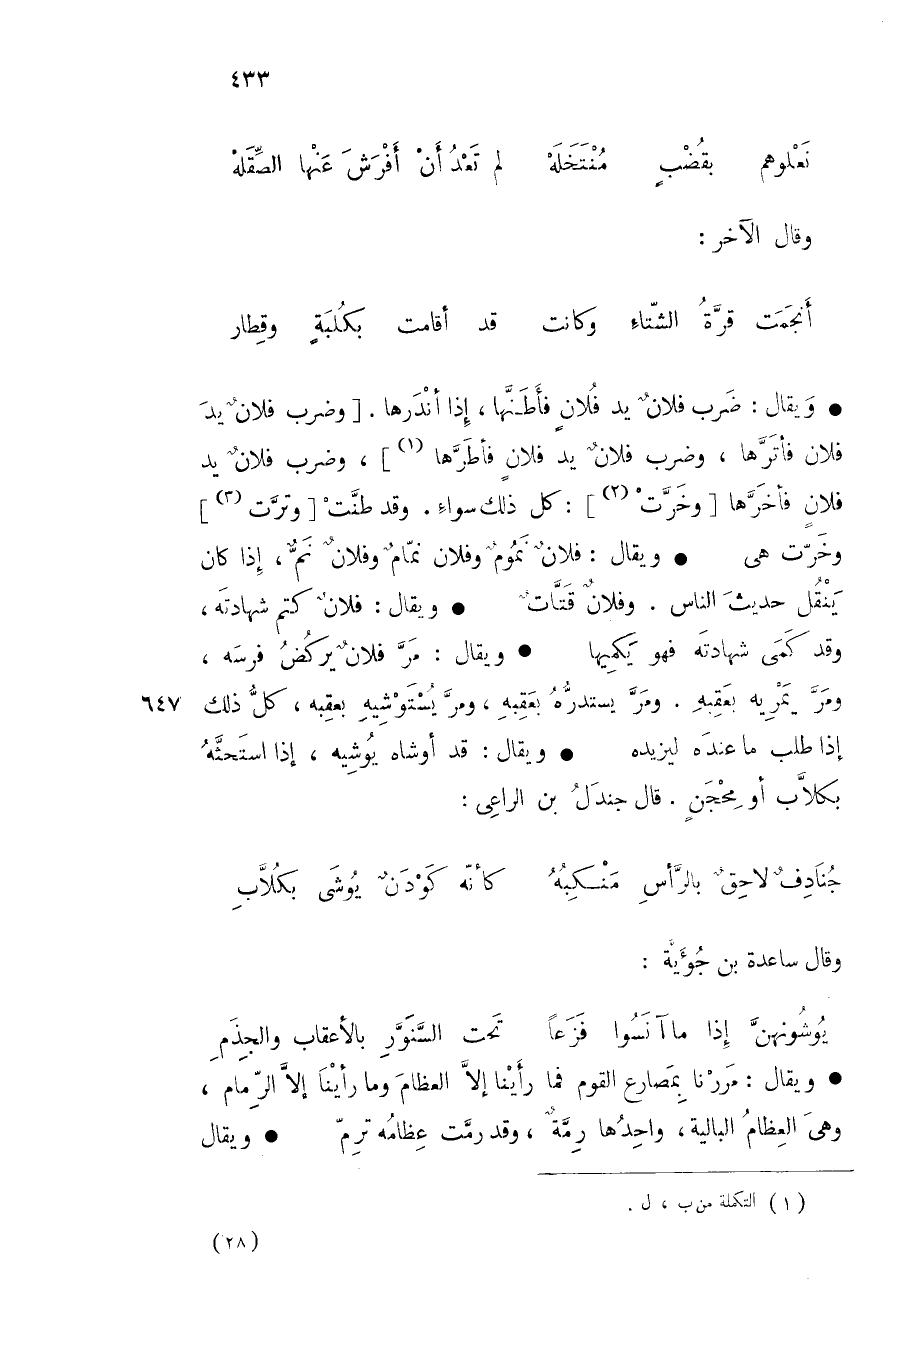 ٤٣٣
نَعْلوهم بقُضْبٍ مُنْتَخَلَهْ لم تَعْدُ أَنْ أَفْرَشَ عَنْها الصِّقَلهْ
وقال الآخر :
أَنجَمَت قرَّةُ الشّتاءِ وكانت قد أقامت بكُلبَةٍ وقِطار
● وَيقال : ضَرب فلانٌ يد فُلانٍ فأَطَنَّها ، إِذا أنْدَرها . [ وضرب فلانٌ يدَ
فلان فأترَّها ، وضرب فلانٌ يد فلانٍ فأطَرَّها (١) ] ، وضرب فلانٌ يد
فلانٍ فأخَرَّها [ وخَرَّتْ (٢) ] : كل ذلك سواء . وقد طنَّتْ [ وترَّت (٣) ]
وخَرّت هى ● ويقال : فلانٌ نَمُومٌ وفلان نمّامٌ وفلانٌ نَمٌّ ، إِذا كان
يَنْقُل حديثَ الناس . وفلانٌ قَتَّاتٌ ● ويقال : فلانٌ كتم شهادتَه ،
وقد كَمَى شهادتَه فهو يَكمِيها ● ويقال : مَرَّ فلانٌ يركُضُ فرسَه ،
ومَرَّ يَمْرِيه بعَقِبهِ . ومَرَّ يستدرُّهُ بعَقِبهِ ، ومرَّ يُسْتَوْشِيهِ بعقِبه ، كلُّ ذلك ٦٤٧
إذا طلب ما عندَه ليزيده ● ويقال : قد أوشاه يُوشِيه ، إذا استَحثَّهُ
بكلاَّب أو مِحْجَنٍ . قال جندَلُ بن الراعِى :
جُنَادِفٌ لاحِقٌ بالرَّأسِ مَنْكِبُهُ كأنّه كَوْدَنٌ يُوشَى بكُلاَّبِ
وقال ساعدة بن جُؤَيَّة :
يُوشُونهنَّ إِذا ما آنَسُوا فَزَعاً تَحت السَّنَوَّرِ بالأعقاب والجِذَمِ
● ويقال : مَررْنا بِمَصارع القوم فما رأَيْنا إلاَّ العظامَ وما رأيْنَا إلاَّ الرِّمام ،
وهىَ العِظامُ البالية ، واحِدُها رِمَّةٌ ، وقد رمَّت عِظامُه ترِمّ ● ويقال
(١) التكملة من ب ، ل .
(٢٨)